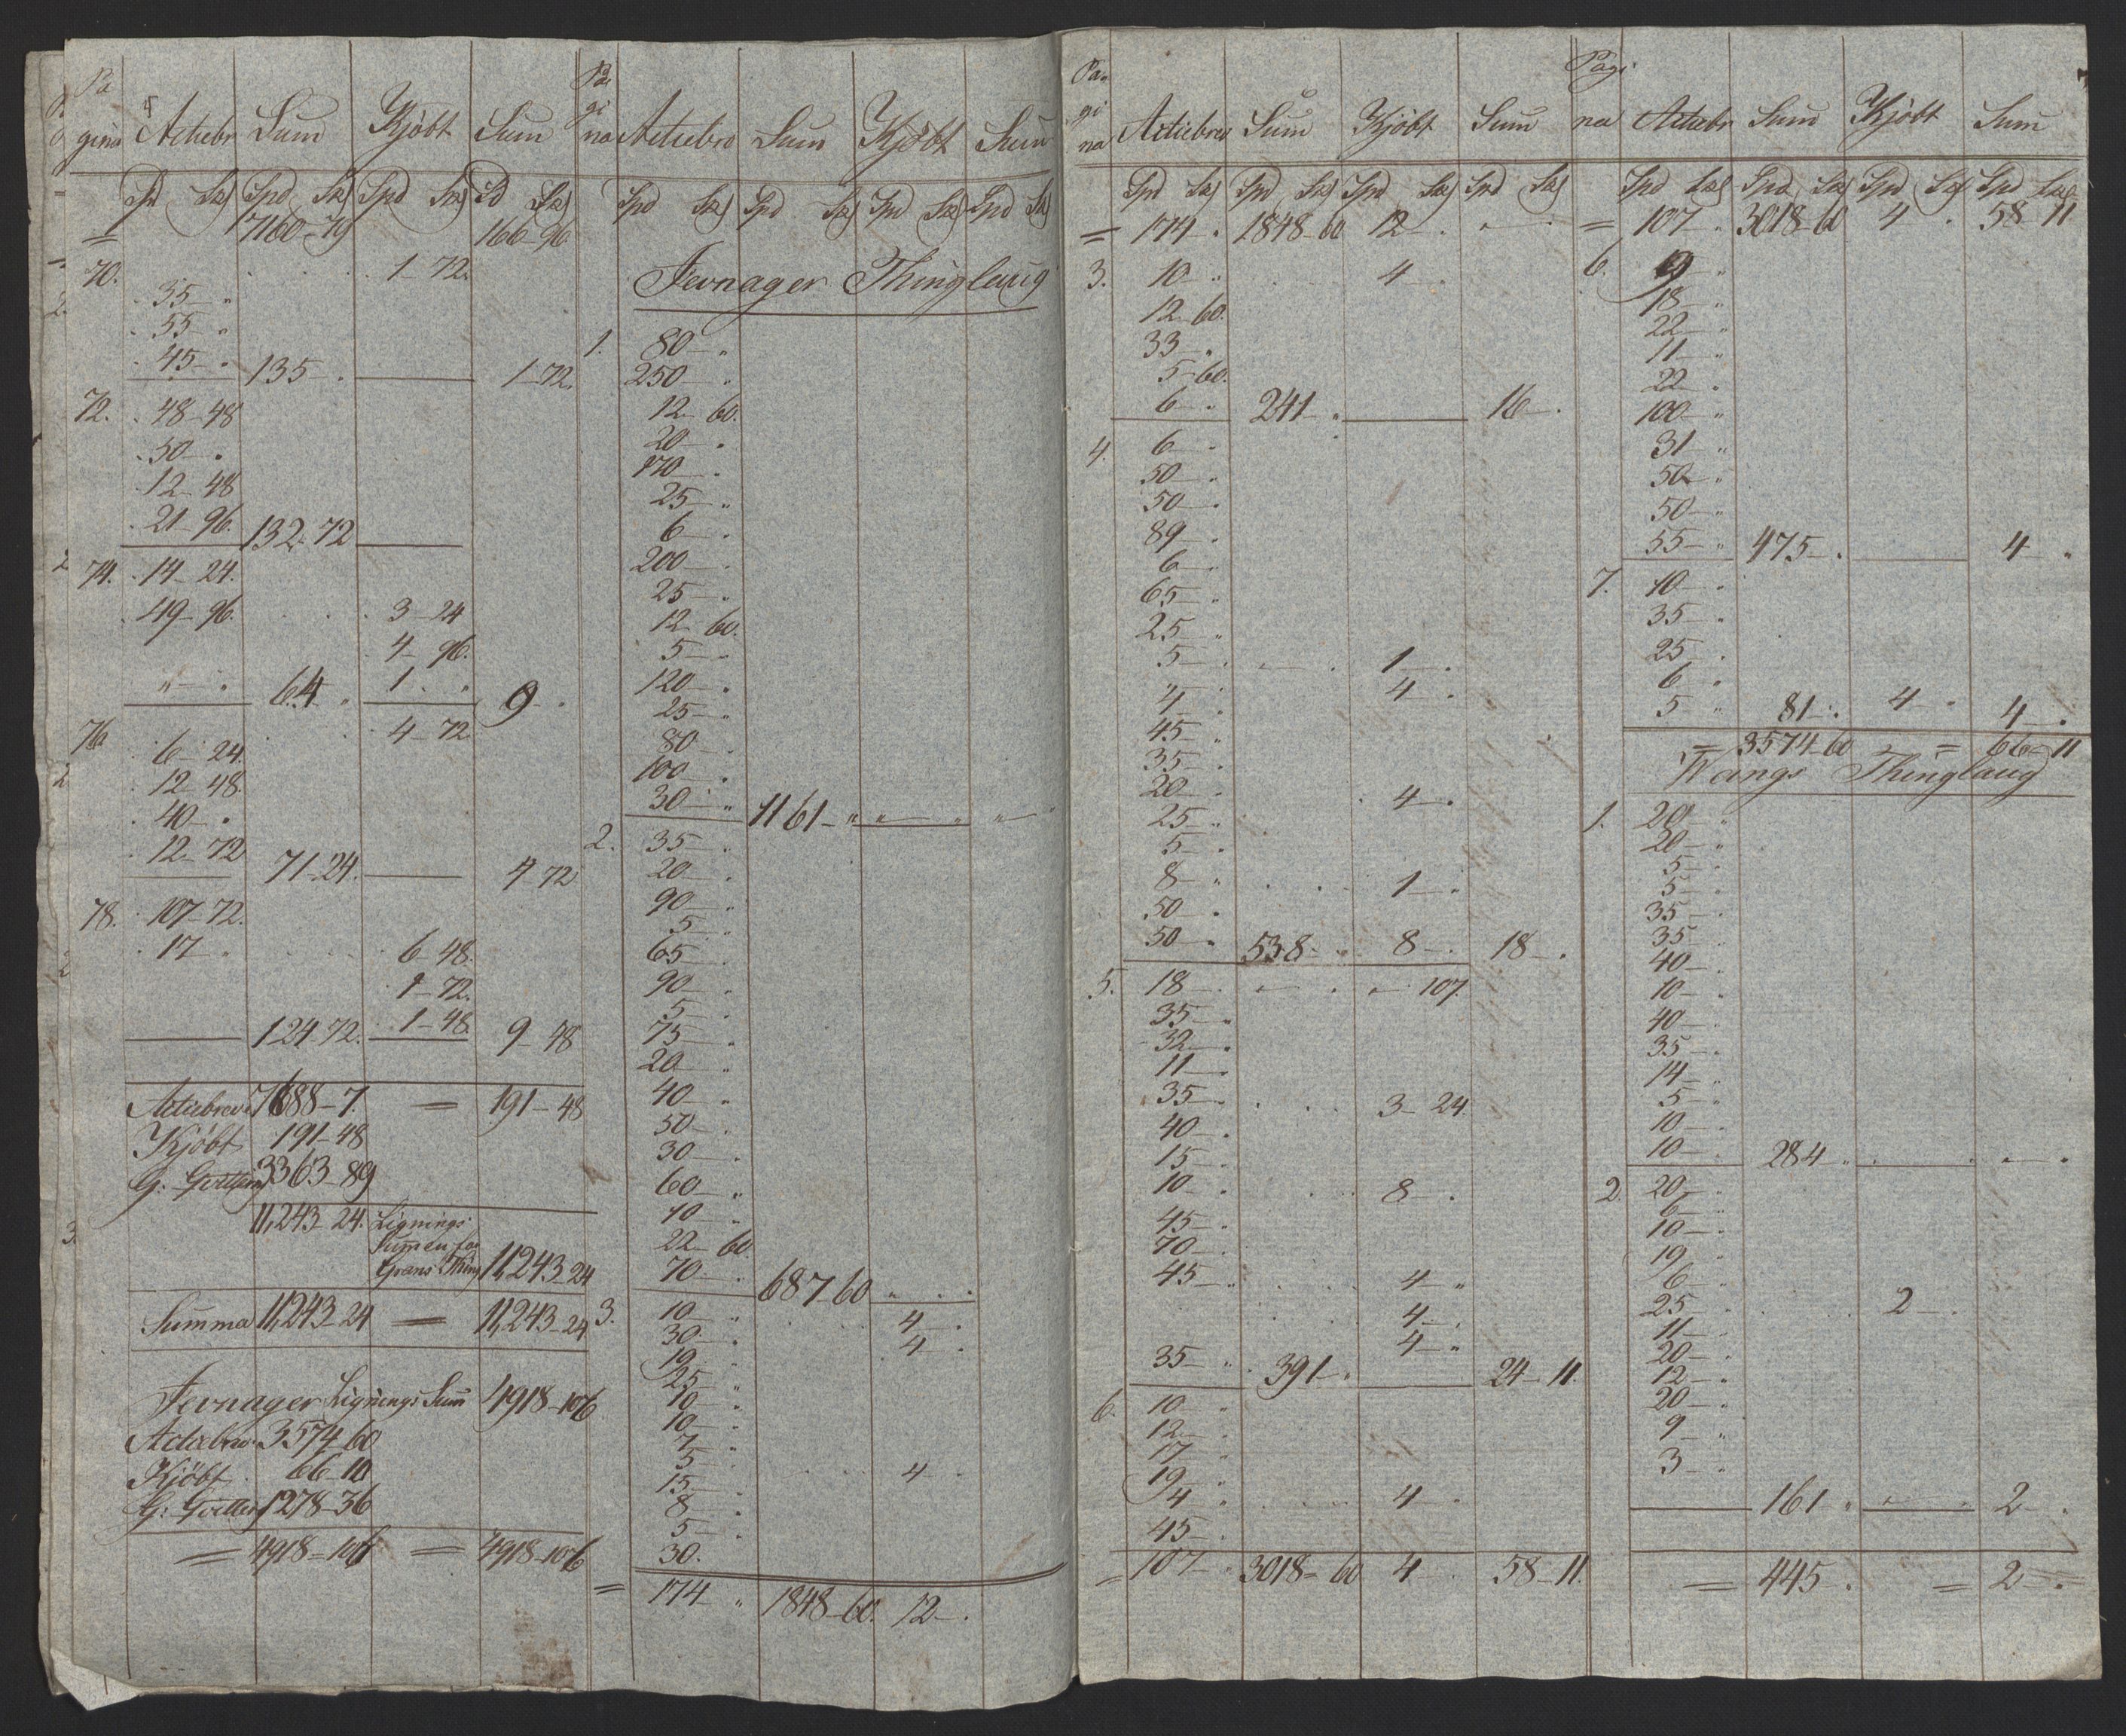 Pagina Actiebr Sum Kjöbt Sum
Spd Sk Spd Sk Spd Sk Sp Sk
= 7160-79 166-96
70. 1-72.
35 „
55 „
45 „ 135 „ 1-72.
72. 48-48
50 „
12-48
21-96. 132-72
74. 14-24.
49-96. 3-24
4-96.
„ „ 64 „ 1 „ 9 „
76 4-72
6-24.
12-48.
40 „
12-72 71-24. 4-72
78. 107-72.
17 „ 6-48.
1-72.
124-72. 1-48. 9-48
Actiebreve 7688-7. = 191-48
Kjöbt 191-48
3363-89
11,243-24. Lignings
Summen for
Grans Thing 11,243-24
Summa 11,243-24 = 11,243-24
Jevnager Lignings Sum 4918-106
Actiebrev 3574-60
Kjöbt 66-10
1278-36
= 4918-106 = 4918-106
Pagina Actiebre Sum Kjöbt Sum
Spd Sk Spd Sk Spd Sk Spd Sk
Jevnager Thinglaug
1. 80 „
250 „
12-60.
20 „
170 „
25 „
6 „
200 „
25 „
12-60.
5 „
120 „
25 „
80 „
100 „
30 „ 1161 „ „ „ „
2. 35 „
20 „
90 „
5 „
65 „
90 „
5 „
75 „
20 „
40 „
50 „
30 „
60 „
10 „
22-60
70 „ 687-60 „ „
3. 10 „ 4 „
30 „ 4 „
19 „
25 „
10 „
10 „
7 „
5 „ 4 „
15 „
8 „
5 „
30.
= 174 „ 1848-60. 12 „
Pagina Actiebrev Sum Kjöbt Sum
Spd Sk Spd Sk Spd Sk Spd Sk
= 174 „ 1848-60 12 „ „
3. 10 „ 4 „
12-60.
33 „
5-60.
6 „ 241 „ 16 „
4. 6 „
50 „
50 „
89 „
6 „
65 „
25 „
5 „ 1 „
4 „ 4 „
45 „
35 „
20 „ 4 „
25 „
5 „
8 „ 1 „
50 „
50 „ 538 „ 8 „ 18 „
5. 18 „ „ 107.
35 „
32 „
11 „
35 „ 3-24.
40 „
15 „
10 „ 8 „
45 „
70 „
45 „ 4 „
4 „
4 „
35 „ 391 „ 24-11.
6. 10 „
12 „
17 „
19 „
4 „ 4 „
45 „
= 107 „ 3018-60 4 „ 58-11.
Pagina Actiebr Sum Kjöbt Sum
Spd Sk Spd Sk Spd Sk Spd Sk
= 107 „ 3018-60 4 „ 58-11
6. 9 „
18 „
22 „
11 „
22 „
100 „
31 „
50 „
50 „
55 „ 475 „ 4 „
7. 10 „
35 „
25 „
6 „
5 „ 81 „ 4 „ 4 „
= 3574-60 = 66-11
Wangs Thinglaug
1. 20 „
20 „
5 „
5 „
35 „
35 „
40 „
10 „
40 „
35 „
14 „
5 „
10 „
10 „ 284 „ „
2. 20 „
6 „
10 „
19 „
6 „
25 „ 2 „
11 „
20 „
12 „
20 „
9 „
3 „
161 „ „ 2 „
= 445 „ = 2 „